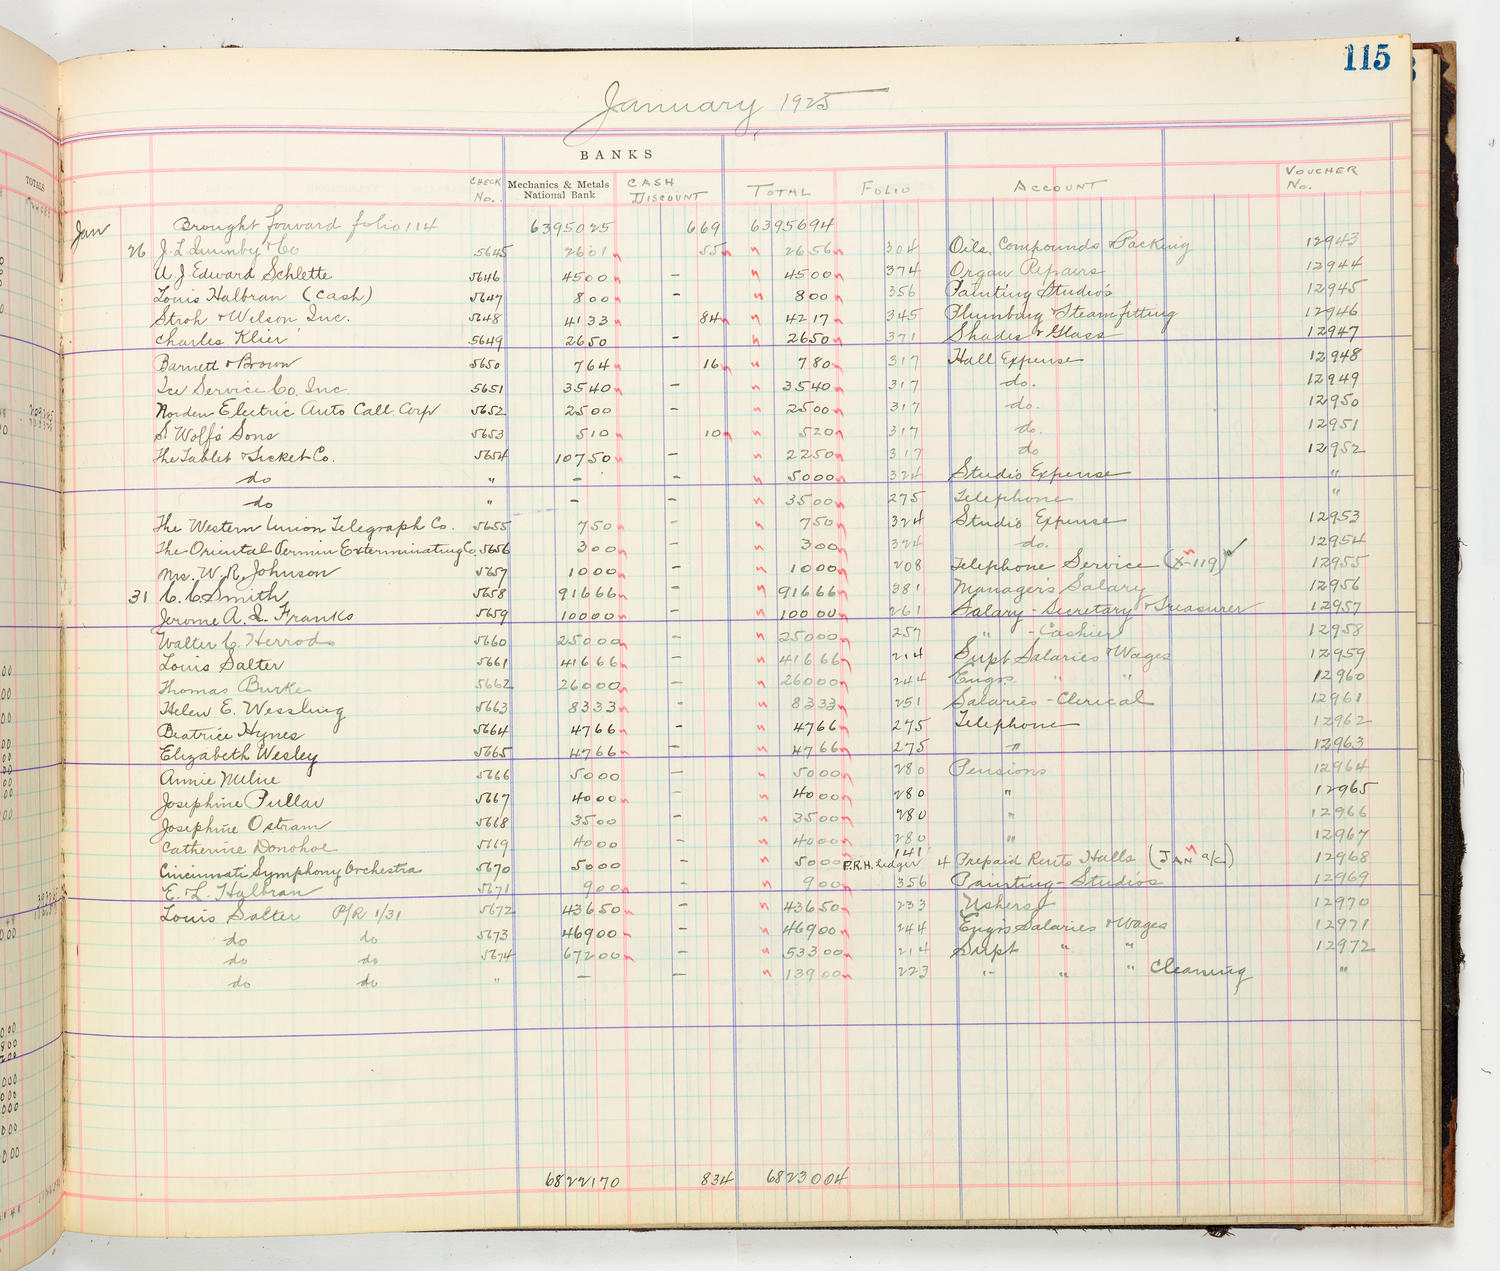 115
January 1925
BANKS
CHECK No. Mechanics & Metals National Bank CASH DISCOUNT TOTAL FOLIO ACCOUNT VOUCHER No.
TOTALS
Jan Brought forward folio 114 6395025 669 6395694
26 J. L. Quimby & Co 5645 2601 55 " 2656 304 Oils, Compounds & Packing 12943
U J Edward Schlette 5646 4500 - " 4500 374 Organ Repairs 12944
Louis Halbran (Cash) 5647 800 - " 800 356 Painting Studios 12945
Stroh & Wilson Inc. 5648 4133 84 " 4217 345 Plumbing & Steamfitting 12946
Charles Klier 5649 2650 - " 2650 371 Shades & Glass 12947
Barnett & Brown 5650 764 16 " 780 317 Hall Expense 12948
Ice Service Co. Inc 5651 3540 - " 3540 317 do. 12949
Norden Electric Auto Call. Corp 5652 2500 - " 2500 317 do. 12950
S. Wolff's Sons 5653 510 10 " 520 317 do. 12951
The Tablet & Ticket Co. 5654 10750 - " 2250 317 do 12952
do " - - " 5000 324 Studio Expense "
do " - - " 3500 275 Telephone "
The Western Union Telegraph Co. 5655 750 - " 750 324 Studio Expense 12953
The Oriental Vermin Exterminating Co. 5656 300 - " 300 324 do. 12954
Mrs. W. R. Johnson 5657 1000 - " 1000 208 Telephone Service (X-119) ✓ 12955
31 C. C. Smith 5658 91666 - " 91666 381 Manager's Salary 12956
Jerome A. L. Franks 5659 10000 - " 10000 261 Salary - Secretary & Treasurer 12957
Walter C. Herrod 5660 25000 - " 25000 257 " - Cashier 12958
Louis Salter 5661 41666 - " 41666 214 Supt Salaries & Wages 12959
Thomas Burke 5662 26000 - " 26000 244 Engrs " " 12960
Helen E. Wessling 5663 8333 - " 8333 251 Salaries - Clerical 12961
Beatrice Hynes 5664 4766 - " 4766 275 Telephone 12962
Elizabeth Wesley 5665 4766 - " 4766 275 " 12963
Annie Milne 5666 5000 - " 5000 280 Pensions 12964
Josephine Pullar 5667 4000 - " 4000 280 " 12965
Josephine Ostram 5668 3500 - " 3500 280 " 12966
Catherine Donohoe 5669 4000 - " 4000 280 " 12967
Cincinnati Symphony Orchestra 5670 5000 - " 5000 P.R.H. Ledger 141 4 Prepaid Rents Halls (JAN a/c) 12968
E. L. Halbran 5671 900 - " 900 356 Painting - Studios 12969
Louis Salter P/R 1/31 5672 43650 - " 43650 233 Ushers 12970
do do 5673 46900 - " 46900 244 Engrs Salaries & Wages 12971
do do 5674 67200 - " 53300 214 Supt " " 12972
do do " - - " 13900 223 " " " Cleaning "
6822170 834 6823004